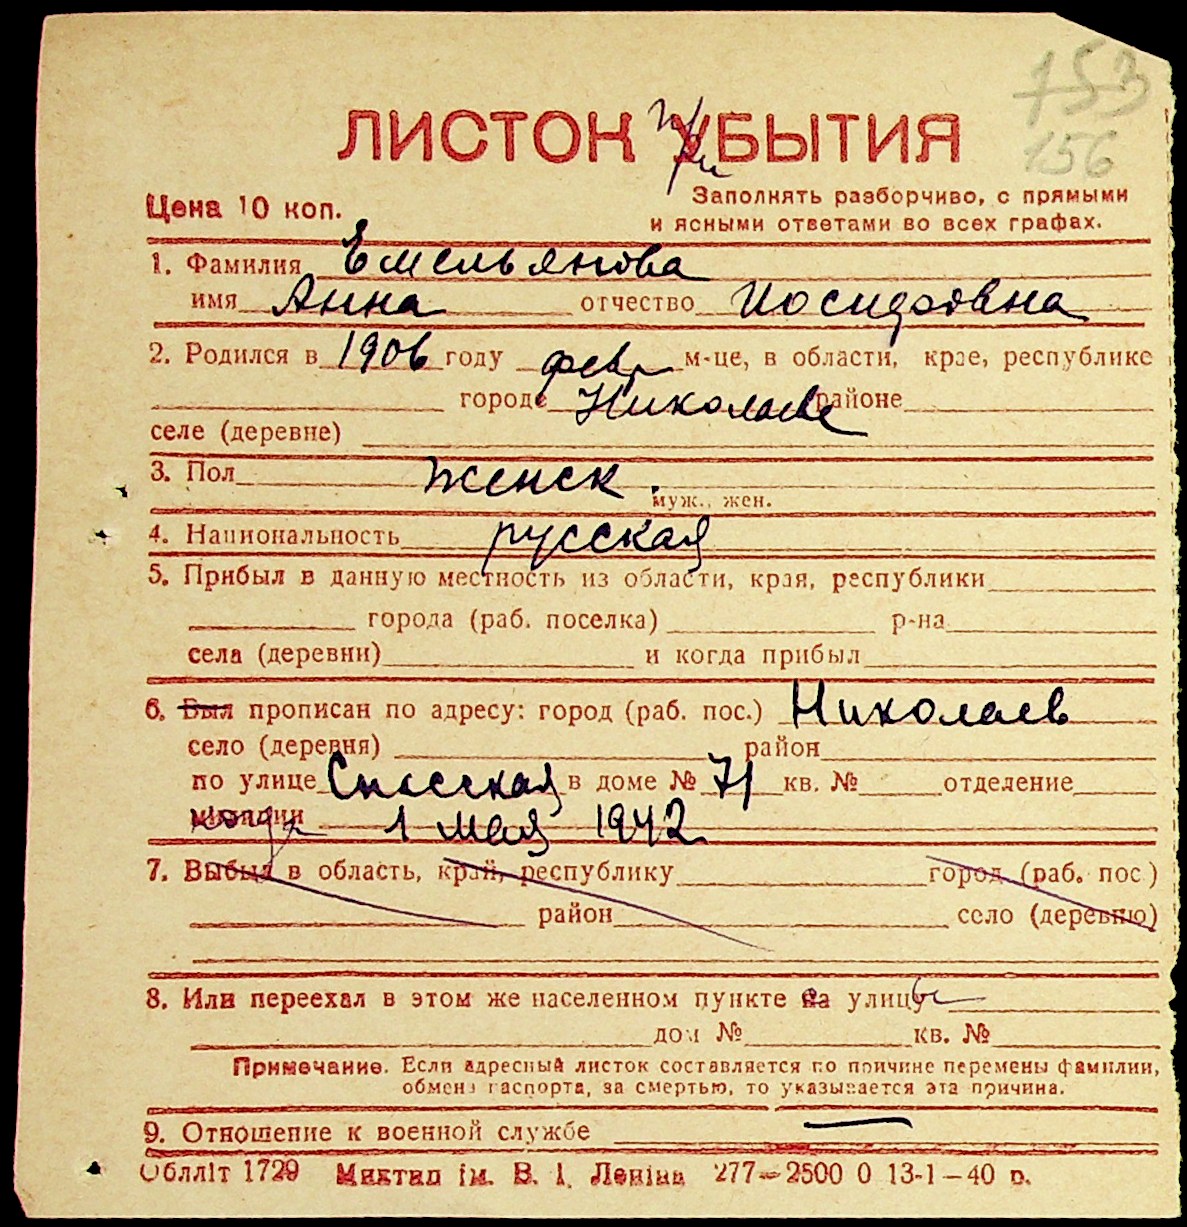 153
156
ЛИСТОК при УБЫТИЯ
Цена 10 коп.
Заполнять разборчиво, с прямыми
и ясными ответами во всех графах.
1. Фамилия Емельянова
имя Анна отчество Иосидовна
2. Родился в 1906 году февр м-це, в области, крае, республике
городе Николаеве районе
селе (деревне)
3. Пол женск.
муж., жен.
4. Национальность русская
5. Прибыл в данную местность из области, края, республики
города (раб. поселка) р-на
села (деревни) и когда прибыл
6. Был прописан по адресу: город (раб. пос.) Николаев
село (деревня) район
по улице Спасская в доме № 71 кв. № отделение
милиции когда 1 мая 1942
7. Выбыл в область, край, республику город (раб. пос.)
район село (деревню)
8. Или переехал в этом же населенном пункте на улицу
дом № кв. №
Примечание. Если адресный листок составляется по причине перемены фамилии,
обмена паспорта, за смертью, то указывается эта причина.
9. Отношение к военной службе —
Облліт 1729 Миктип ім. В. І. Леніна 277—2500 0 13-1—40 р.